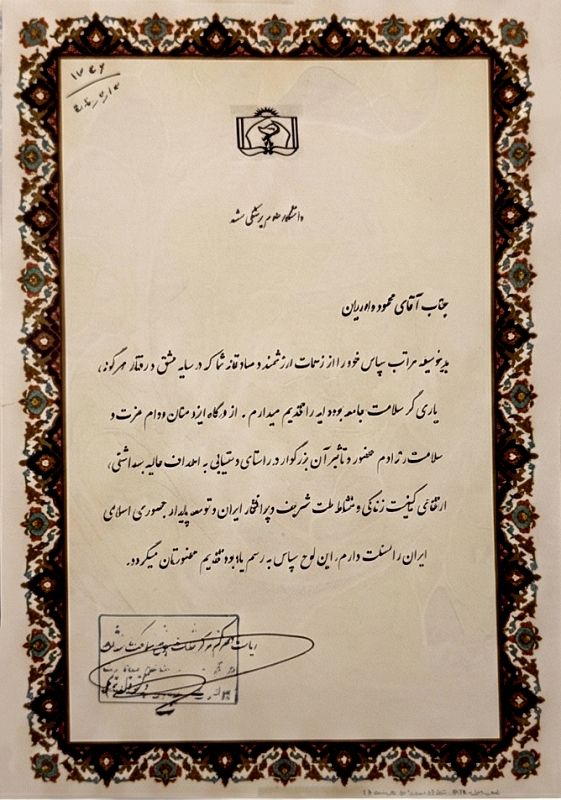 ۱۷۶۶
دانشگاه علوم پزشکی مشهد
جناب آقای محمود داوریان
بدینوسیله مراتب سپاس خود را از زحمات ارزشمند و صادقانه شما که در سایه عشق و رفتار هرگونه،
یاری گر سلامت جامعه بوده اید را تقدیم میدارم. از درگاه ایزد منان دوام عزت و
سلامت، تداوم حضور و تأثیر آن بزرگوار در راستای دستیابی به اهداف عالیه بهداشتی،
ارتقای کیفیت زندگی و نشاط ملت شریف و پرافتخار ایران و توسعه پایدار جمهوری اسلامی
ایران را مسئلت دارم، این لوح سپاس به رسم یادبود تقدیم حضورتان میگردد.